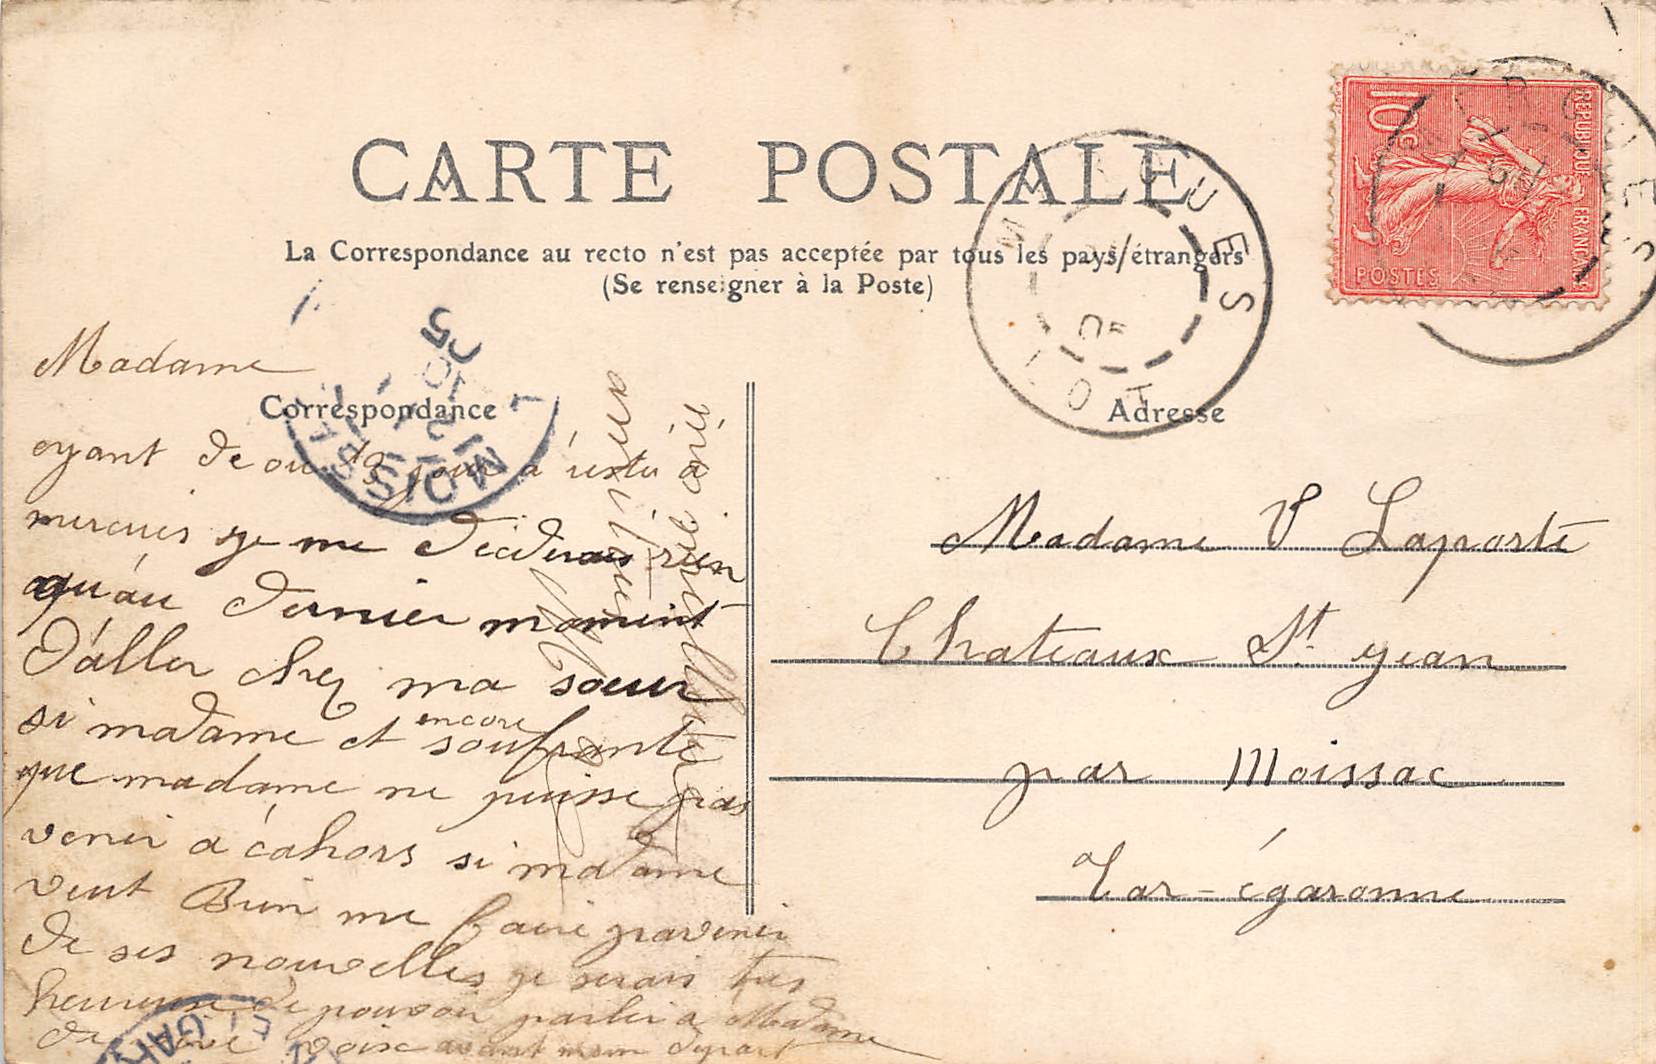 CARTE POSTALE
La Correspondance au recto n'est pas acceptée par tous les pays étrangers
(Se renseigner à la Poste)
Correspondance
Adresse
Madame
ayant de ou jour à rester a
mercues je me deciderais rien
qu'au dernier moment
d'aller chez ma soeur
si madame et encore soufrante
que madame ne puisse pas
venir a cahors si madame
veut Bien me faire pravenir
de ses nouvelles je serais tres
heureuse de pouvoir parler a Madame
de vive voix avant mon depart
Madame V Laporte
Chateaux St jean
par Moissac
Tar-égaronne
REPUBLIQUE FRANÇAISE
10c
POSTES
MERCUES
LOT
05
MERCUES
MOISSAC
10
05